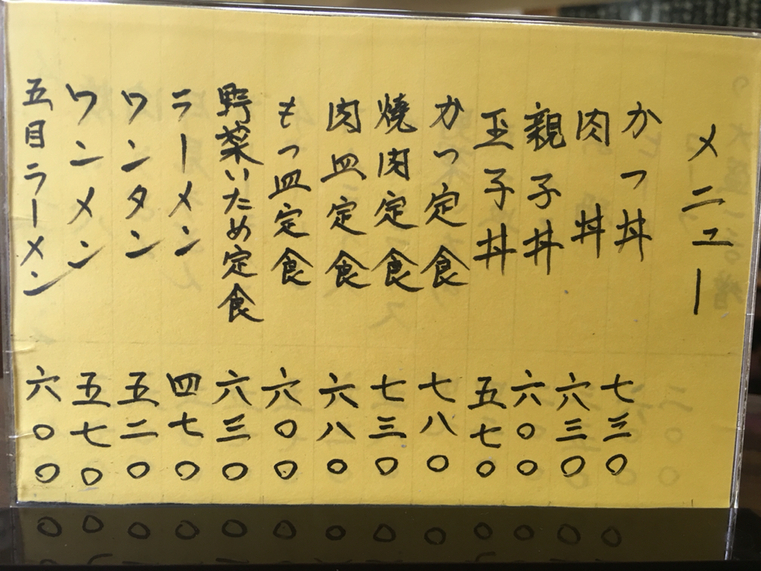 メニュー
かつ丼 七三〇
肉丼 六三〇
親子丼 六〇〇
玉子丼 五七〇
かつ定食 七八〇
焼肉定食 七三〇
肉皿定食 六八〇
もつ皿定食 六〇〇
野菜いため定食 六三〇
ラーメン 四七〇
ワンタン 五二〇
ワンメン 五七〇
五目ラーメン 六〇〇